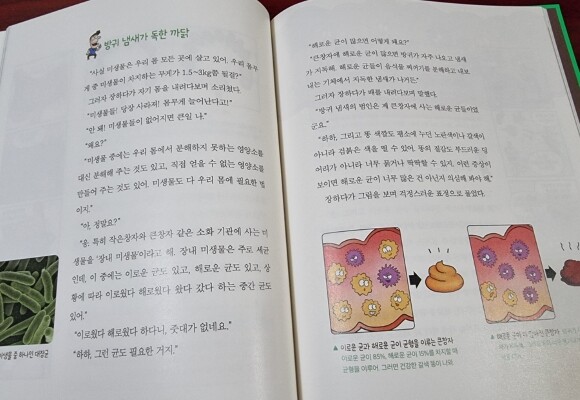 방귀 냄새가 독한 까닭
"사실 미생물은 우리 몸 모든 곳에 살고 있어. 우리 몸무
게 중 미생물이 차지하는 무게가 1.5~3kg쯤 될걸?"
그러자 장하다가 자기 몸을 내려다보며 소리쳤다.
"미생물들! 당장 사라져! 몸무게 늘어난다고!"
"안 돼! 미생물들이 없어지면 큰일 나."
"왜요?"
"미생물 중에는 우리 몸에서 분해하지 못하는 영양소를
대신 분해해 주는 것도 있고, 직접 얻을 수 없는 영양소를
만들어 주는 것도 있어. 미생물도 다 우리 몸에 필요한 법
이지."
"아, 정말요?"
"응. 특히 작은창자와 큰창자 같은 소화 기관에 사는 미
생물을 '장내 미생물'이라고 해. 장내 미생물은 주로 세균
인데, 이 중에는 이로운 균도 있고, 해로운 균도 있고, 상
황에 따라 이로웠다 해로웠다 왔다 갔다 하는 중간 균도
있어."
"이로웠다 해로웠다 하다니, 줏대가 없네요."
"하하, 그런 균도 필요한 거지."
생물 중 하나인 대장균
"해로운 균이 많으면 어떻게 돼요?"
"큰창자에 해로운 균이 많으면 방귀가 자주 나오고 냄새
가 지독해. 해로운 균들이 음식물 찌꺼기를 분해하고 내보
내는 기체에서 지독한 냄새가 나거든."
그러자 장하다가 배를 내려다보며 말했다.
"방귀 냄새의 범인은 제 큰창자에 사는 해로운 균들이었
군요."
"하하, 그리고 똥 색깔도 평소에 누던 노란색이나 갈색이
아니라 검붉은 색을 띨 수 있어. 똥의 질감도 부드러운 덩
어리가 아니라 너무 묽거나 딱딱할 수 있지. 이런 증상이
보이면 해로운 균이 너무 많은 건 아닌지 의심해 봐야 해."
장하다가 그림을 보며 걱정스러운 표정으로 물었다.
▲ 이로운 균과 해로운 균이 균형을 이루는 큰창자
이로운 균이 85%, 해로운 균이 15%를 차지할 때
균형을 이루어. 그러면 건강한 갈색 똥이 나와.